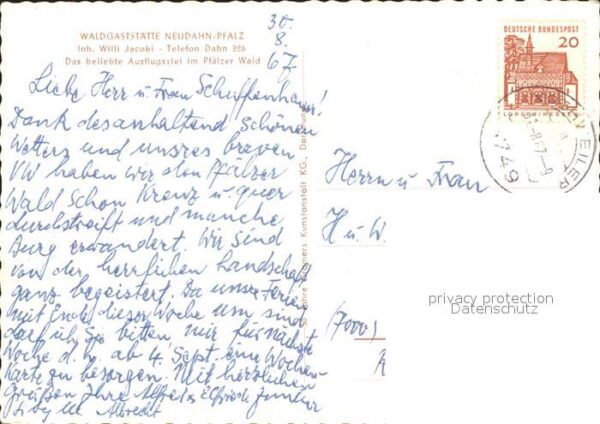 WALDGASTSTÄTTE NEUDAHN-PFALZ
Inh. Willi Jacobi - Telefon Dahn 326
Das beliebte Ausflugsziel im Pfälzer Wald
30.
8.
67
Liebe Herr u. Frau
Dank des anhaltend schönen
Wetters und unsres braven
VW haben wir den Pfälzer
Wald schon Kreuz u. quer
durchstreift und manche
Burg erwandert. Wir sind
von der herrlichen Landschaft
ganz begeistert. Da unsre Ferien
mit Ende dieser Woche um sind
darf ich Sie bitten, mir für nächste
Woche d. h. ab 4. Sept. eine Wochen-
Karte zu besorgen. Mit herzlichen
Grüßen Ihre Alfred u. Elfriede
Albrecht
Krämers Kunstanstalt KG, Dortmund
DEUTSCHE BUNDESPOST
20
LORSCH/HESSEN
WEILER
6749
Herrn u. Frau
H u. W.
(7000)
privacy protection
Datenschutz